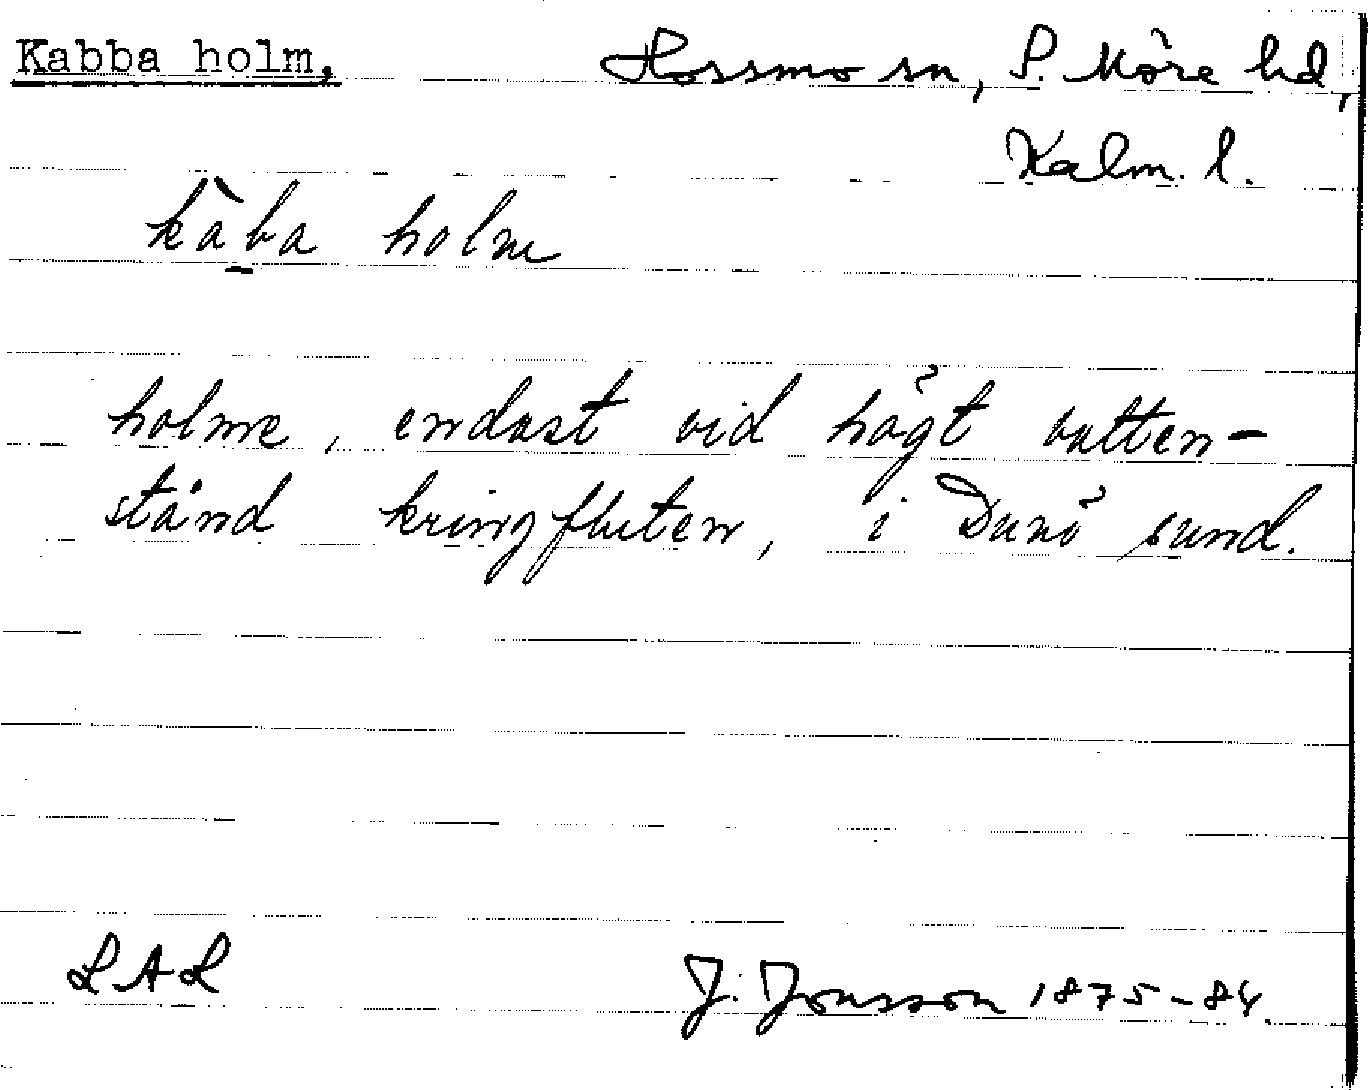 Kabba holm, Hossmo sn, S. Möre hd,
Kalm. l.
kàba holm
holme, endast vid högt vatten-
stånd kringfluten, i Dunö sund.
LAL J. Jonsson 1875-84.